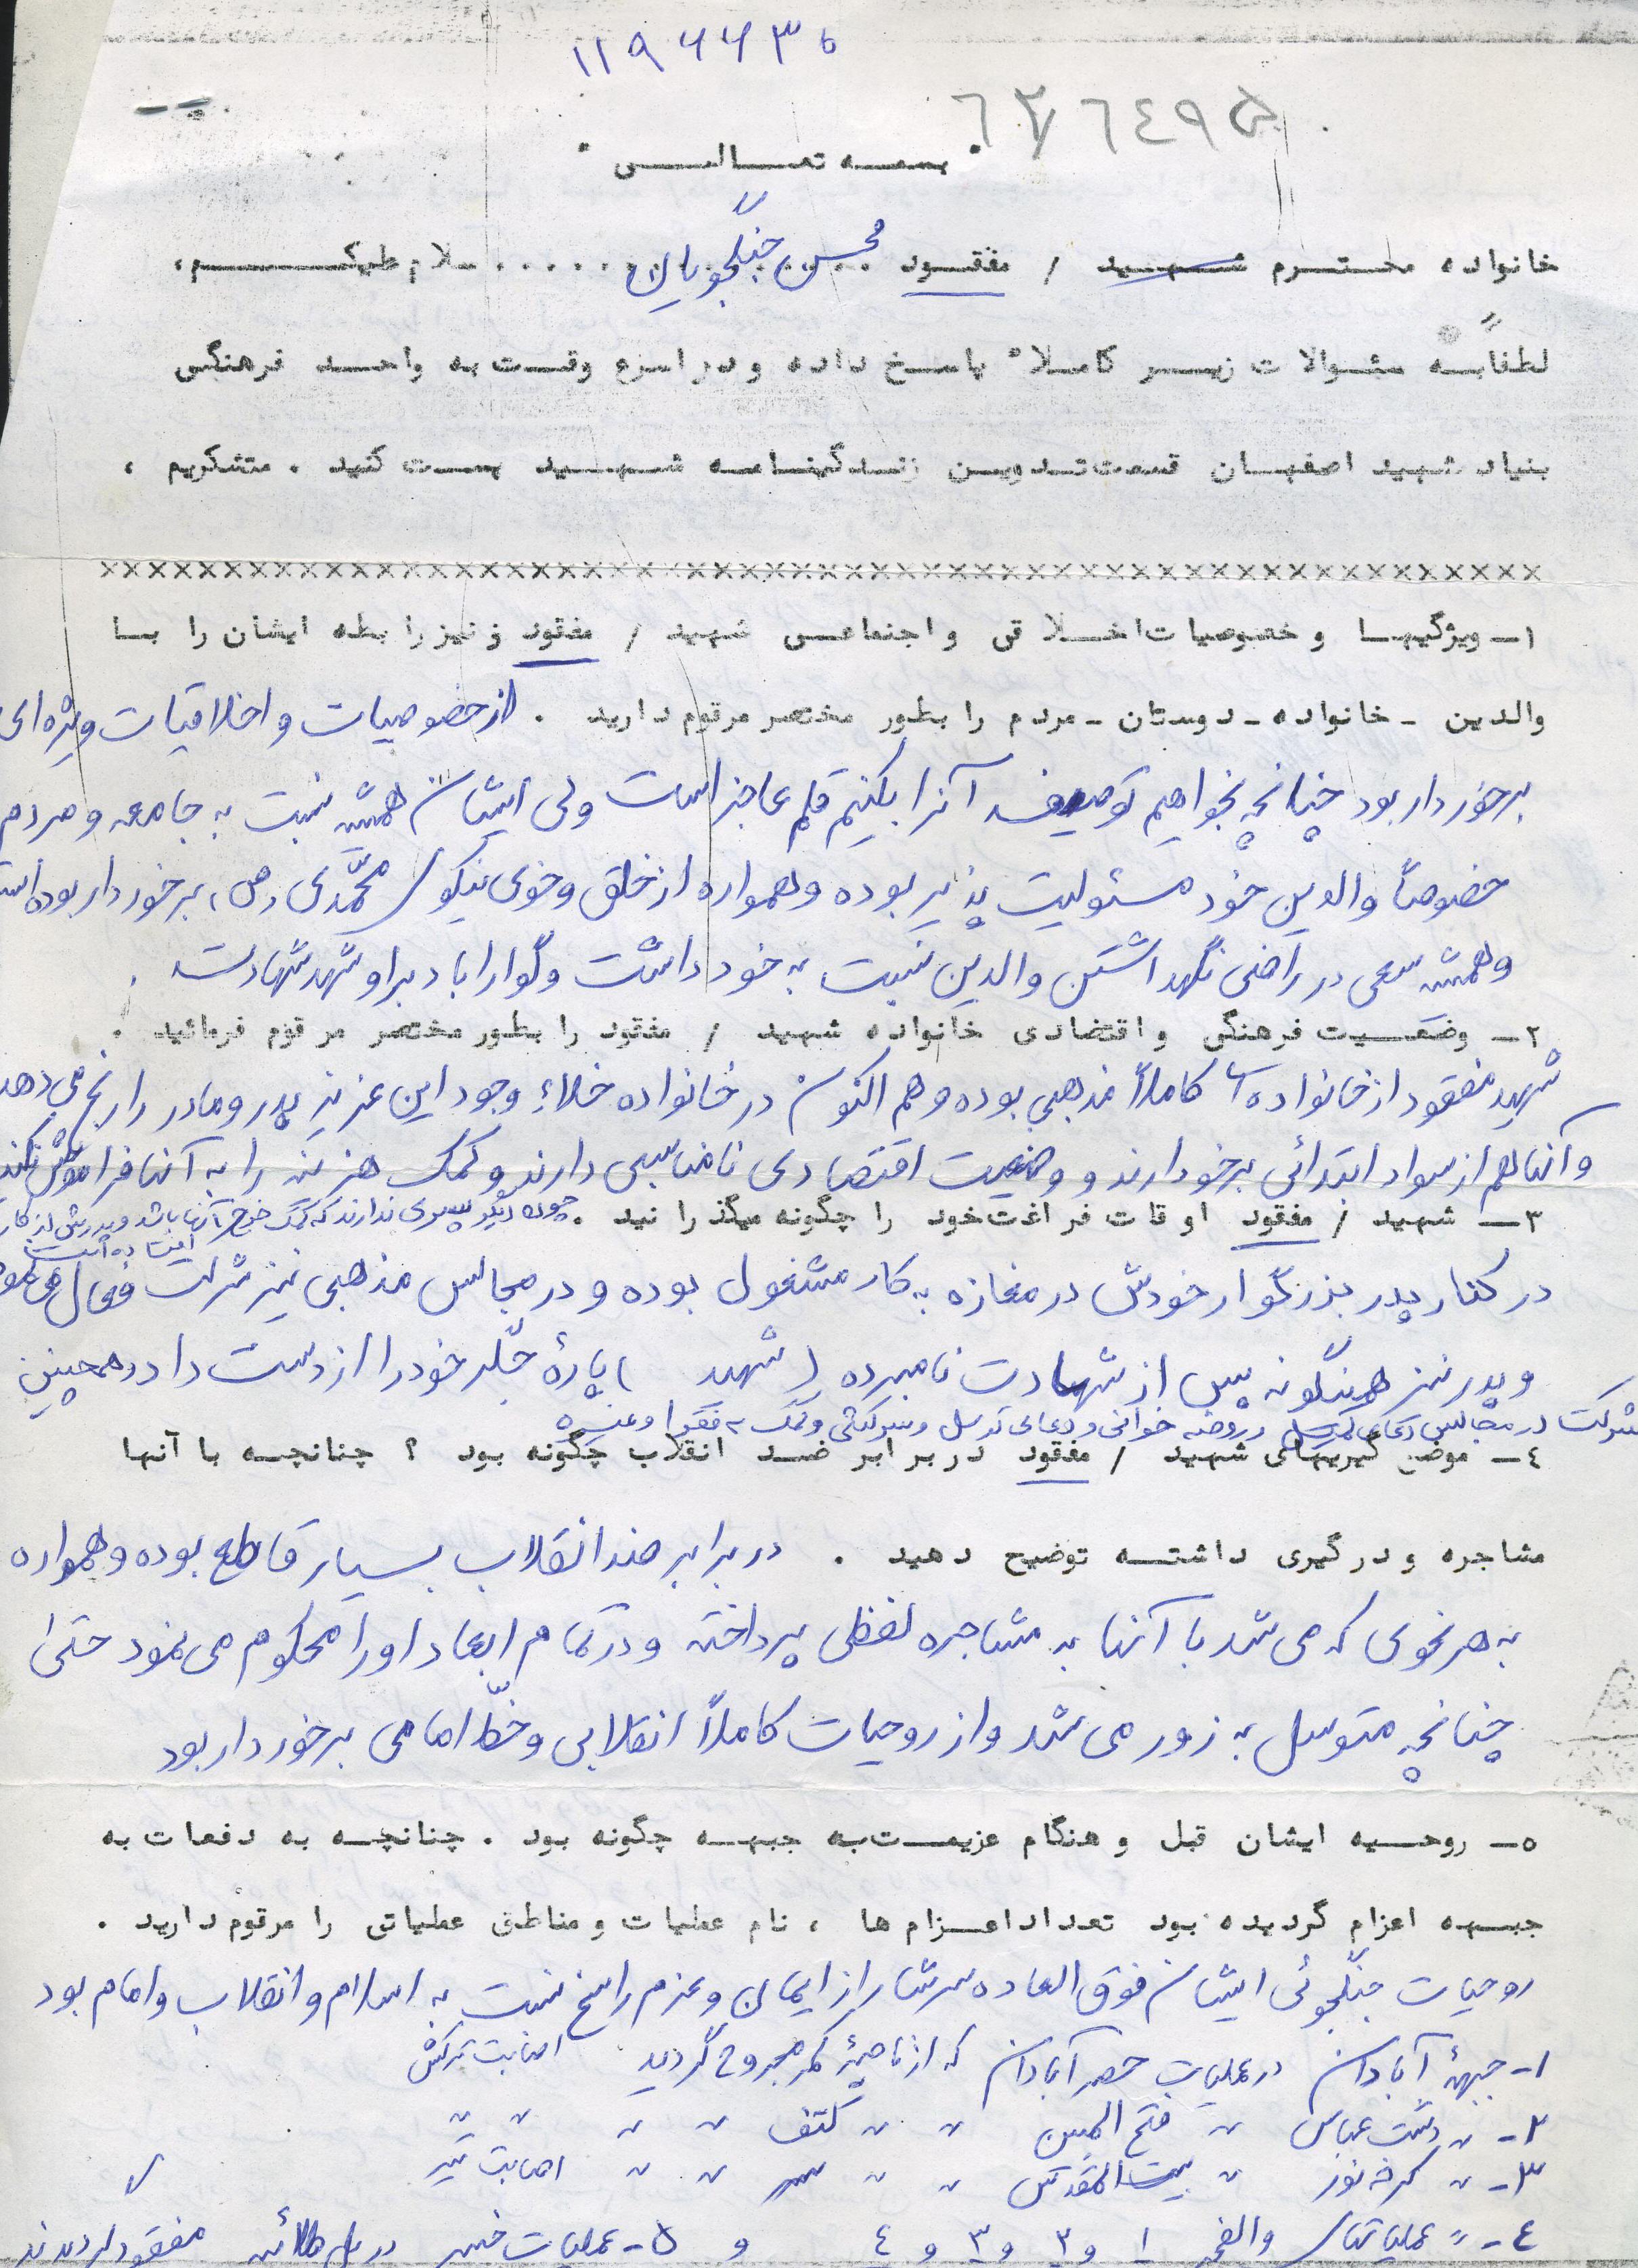 ۱۱۹۶۶۳۵
۶۷۶۴۹۵
بسمه تعالی
خانواده محترم شهید / مفقود محسن جنگجویان سلام علیکم،
لطفاً به سئوالات زیر کاملاً پاسخ داده و در اسرع وقت به واحد فرهنگی
بنیاد شهید اصفهان قسمت تدوین زندگینامه شهید پست کنید . متشکریم ،
××××××××××××××××××××××××××××××××××××××××××××××××××××××××
۱ـ ویژگیها و خصوصیات اخلاقی و اجتماعی شهید / مفقود و نیز رابطه ایشان را با
والدین ـ خانواده ـ دوستان ـ مردم را بطور مختصر مرقوم دارید . از خصوصیات و اخلاقیات ویژه‌ای
برخوردار بود چنانچه بخواهیم توصیف آنرا بکنیم قلم عاجز است ولی ایشان همیشه نسبت به جامعه و مردم
خصوصاً والدین خود مسئولیت پذیر بوده و همواره از خلق و خوی نیکوی محمّدی (ص) برخوردار بوده است
و همیشه سعی در راضی نگهداشتن والدین نسبت به خود داشت و گوارا باد بر او شهد شهادت .
۲ـ وضعیت فرهنگی و اقتصادی خانواده شهید / مفقود را بطور مختصر مرقوم فرمائید .
شهید مفقود از خانواده‌ای کاملاً مذهبی بوده و هم اکنون در خانواده خلاء وجود این عزیز پدر و مادر را رنج می‌دهد
و آنها هم از سواد ابتدائی برخوردارند و وضعیت اقتصادی نامناسبی دارند و کمک هزینه را به آنها فراموش نکنید
چون دیگر پسری ندارند که کمک خرج آنها باشد و پدرش از کار
افتاده است
۳ـ شهید / مفقود اوقات فراغت خود را چگونه میگذرانید .
در کنار پدر بزرگوار خودش در مغازه به کار مشغول بوده و در مجالس مذهبی نیز شرکت فعال می‌نمود
و پدر نیز همینگونه پس از شهادت نامبرده (شهید ) پارهٔ جگر خود را از دست داد و همچنین
شرکت در مجالس دعای کمیل و روضه خوانی و دعای توسل و سرکشی و کمک به فقرا و غیره
۴ـ موضع گیریهای شهید / مفقود در برابر ضد انقلاب چگونه بود ؟ چنانچه با آنها
مشاجره و درگیری داشته توضیح دهید . در برابر ضد انقلاب بسیار قاطع بوده و همواره
به هر نحوی که می‌شد با آنها به مشاجره لفظی پرداخته و در تمام ابعاد او را محکوم می‌نمود حتی
چنانچه متوسل به زور می‌شد و از روحیات کاملاً انقلابی و خطّ امامی برخوردار بود
۵ـ روحیه ایشان قبل و هنگام عزیمت به جبهه چگونه بود . چنانچه به دفعات به
جبهه اعزام گردیده بود تعداد اعزام ها ، نام عملیات و مناطق عملیاتی را مرقوم دارید .
روحیات جنگجوئی ایشان فوق العاده سرشار از ایمان و عزم راسخ نسبت به اسلام و انقلاب و امام بود
۱- جبههٔ آبادان در عملیات حصر آبادان که از ناحیهٔ کمر مجروح گردید اصابت ترکش
۲- " دشت عباس " فتح المبین " " کتف " " " "
۳- " کرخه نور " بیت المقدس " " سر " " اصابت تیر
۴- " عملیاتهای والفجر ۱ و ۲ و ۳ و ۴ و ۵- عملیات خیبر در پل طلائیه مفقود گردیدند